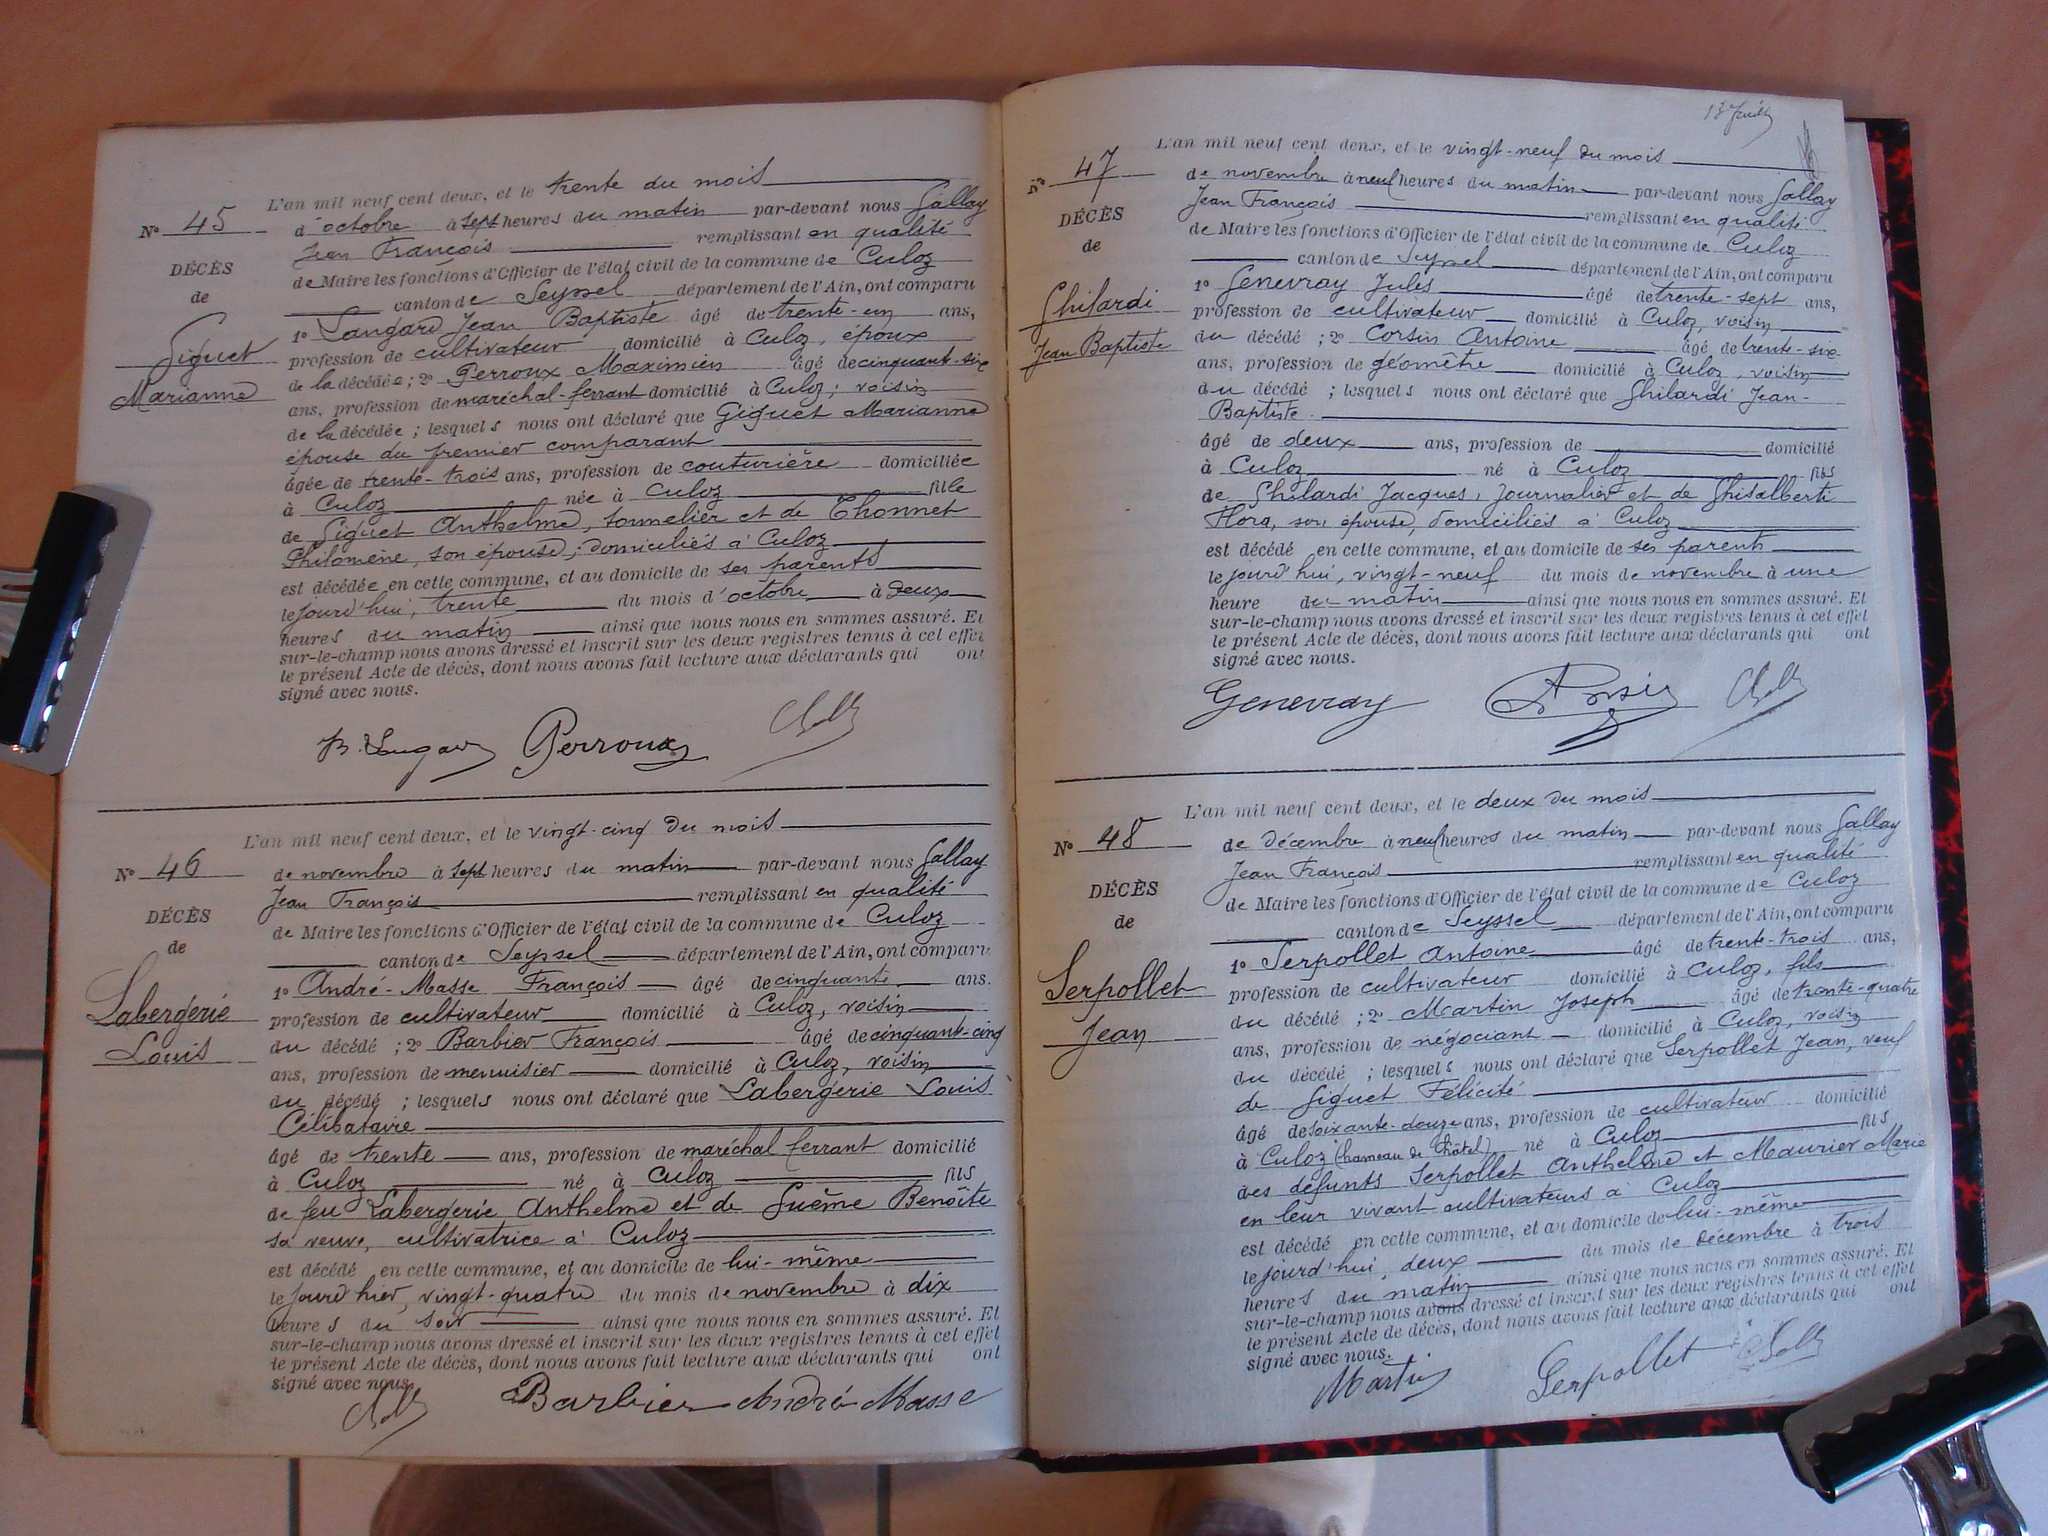 L'an mil neuf cent deux, et le trente du mois
N° 45
d'octobre à sept heures du matin par-devant nous Gallay
Jean François remplissant en qualité
DÉCÈS
de Maire les fonctions d'Officier de l'état civil de la commune de Culoz
de
canton de Seyssel département de l'Ain, ont comparu
Giguet
Marianne
1° Jean Baptiste âgé de trente-un ans,
profession de cultivateur domicilié à Culoz, époux
de la décédée ; 2° Perroux Maximien âgé de cinquante-six
ans, profession de maréchal-ferrant domicilié à Culoz, voisin
de la décédée ; lesquels nous ont déclaré que Giguet Marianne
épouse du premier comparant
âgée de trente-trois ans, profession de couturière domiciliée
à Culoz née à Culoz fille
de Giguet Anthelme, tonnelier et de Thonnet
Philomène, son épouse, domiciliés à Culoz
est décédée en cette commune, et au domicile de ses parents
le jourd'hui, trente du mois d'octobre à deux
heures du matin ainsi que nous nous en sommes assuré. Et
sur-le-champ nous avons dressé et inscrit sur les deux registres tenus à cet effet
le présent Acte de décès, dont nous avons fait lecture aux déclarants qui ont
signé avec nous.
Perroux
L'an mil neuf cent deux, et le vingt-cinq du mois
N° 46
de novembre à sept heures du matin par-devant nous Gallay
Jean François remplissant en qualité
DÉCÈS
de Maire les fonctions d'Officier de l'état civil de la commune de Culoz
de
canton de Seyssel département de l'Ain, ont comparu
Labergerie
Louis
1° André-Masse François âgé de cinquante ans.
profession de cultivateur domicilié à Culoz, voisin
du décédé ; 2° Barbier François âgé de cinquante-cinq
ans, profession de menuisier domicilié à Culoz, voisin
du décédé ; lesquels nous ont déclaré que Labergerie Louis
Célibataire
âgé de trente ans, profession de maréchal ferrant domicilié
à Culoz né à Culoz fils
de feu Labergerie Anthelme et de Guême Benoîte
sa veuve, cultivatrice à Culoz
est décédé en cette commune, et au domicile de lui-même
le jourd'hier, vingt-quatre du mois de novembre à dix
heures du soir ainsi que nous nous en sommes assuré. Et
sur-le-champ nous avons dressé et inscrit sur les deux registres tenus à cet effet
le présent Acte de décès, dont nous avons fait lecture aux déclarants qui ont
signé avec nous.
Barbier André-Masse
L'an mil neuf cent deux, et le vingt-neuf du mois
N° 47
de novembre à neuf heures du matin par-devant nous Gallay
Jean François remplissant en qualité
DÉCÈS
de Maire les fonctions d'Officier de l'état civil de la commune de Culoz
de
canton de Seyssel département de l'Ain, ont comparu
Ghilardi
Jean Baptiste
1° Genevray Jules âgé de trente-sept ans,
profession de cultivateur domicilié à Culoz, voisin
du décédé ; 2° Corsin Antoine âgé de trente-six
ans, profession de géomètre domicilié à Culoz, voisin
du décédé ; lesquels nous ont déclaré que Ghilardi Jean-
Baptiste.
âgé de deux ans, profession de domicilié
à Culoz né à Culoz fils
de Ghilardi Jacques, journalier et de Ghisalberti
Flora, son épouse, domiciliés à Culoz
est décédé en cette commune, et au domicile de ses parents
le jourd'hui, vingt-neuf du mois de novembre à une
heure du matin ainsi que nous nous en sommes assuré. Et
sur-le-champ nous avons dressé et inscrit sur les deux registres tenus à cet effet
le présent Acte de décès, dont nous avons fait lecture aux déclarants qui ont
signé avec nous.
Genevray
L'an mil neuf cent deux, et le deux du mois
N° 48
de décembre à neuf heures du matin par-devant nous Gallay
Jean François remplissant en qualité
DÉCÈS
de Maire les fonctions d'Officier de l'état civil de la commune de Culoz
de
canton de Seyssel département de l'Ain, ont comparu
Serpollet
Jean
1° Serpollet Antoine âgé de trente-trois ans,
profession de cultivateur domicilié à Culoz, fils
du décédé ; 2° Martin Joseph âgé de trente-quatre
ans, profession de négociant domicilié à Culoz, voisin
du décédé ; lesquels nous ont déclaré que Serpollet Jean, veuf
de Giguet Félicité
âgé de soixante-douze ans, profession de cultivateur domicilié
à Culoz (hameau de Châtel) né à Culoz fils
des défunts Serpollet Anthelme et Maurier Marie
en leur vivant cultivateurs à Culoz
est décédé en cette commune, et au domicile de lui-même
le jourd'hui, deux du mois de décembre à trois
heures du matin ainsi que nous nous en sommes assuré. Et
sur-le-champ nous avons dressé et inscrit sur les deux registres tenus à cet effet
le présent Acte de décès, dont nous avons fait lecture aux déclarants qui ont
signé avec nous.
Martin Serpollet